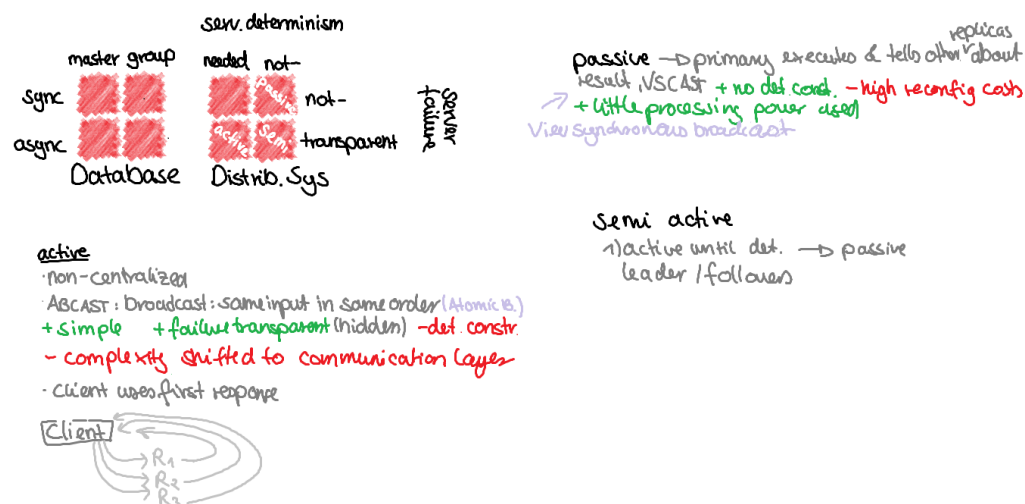 serv. determinism
master group
needed not-
sync
passive
not-
async
active
semi
transparent
server
failure
Database
Distrib. Sys
passive → primary executes & tells other replicas about
result, VSCAST + no det. const. - high reconfig costs
+ little processing power used
View synchronous broadcast
semi active
1) active until det. → passive
leader / followers
active
· non-centralized
ABCAST: broadcast: same input in same order (Atomic B.)
+ simple + failure transparent (hidden) - det. constr.
- complexity shifted to communication layer
· Client uses first response
Client
R1
R2
R3